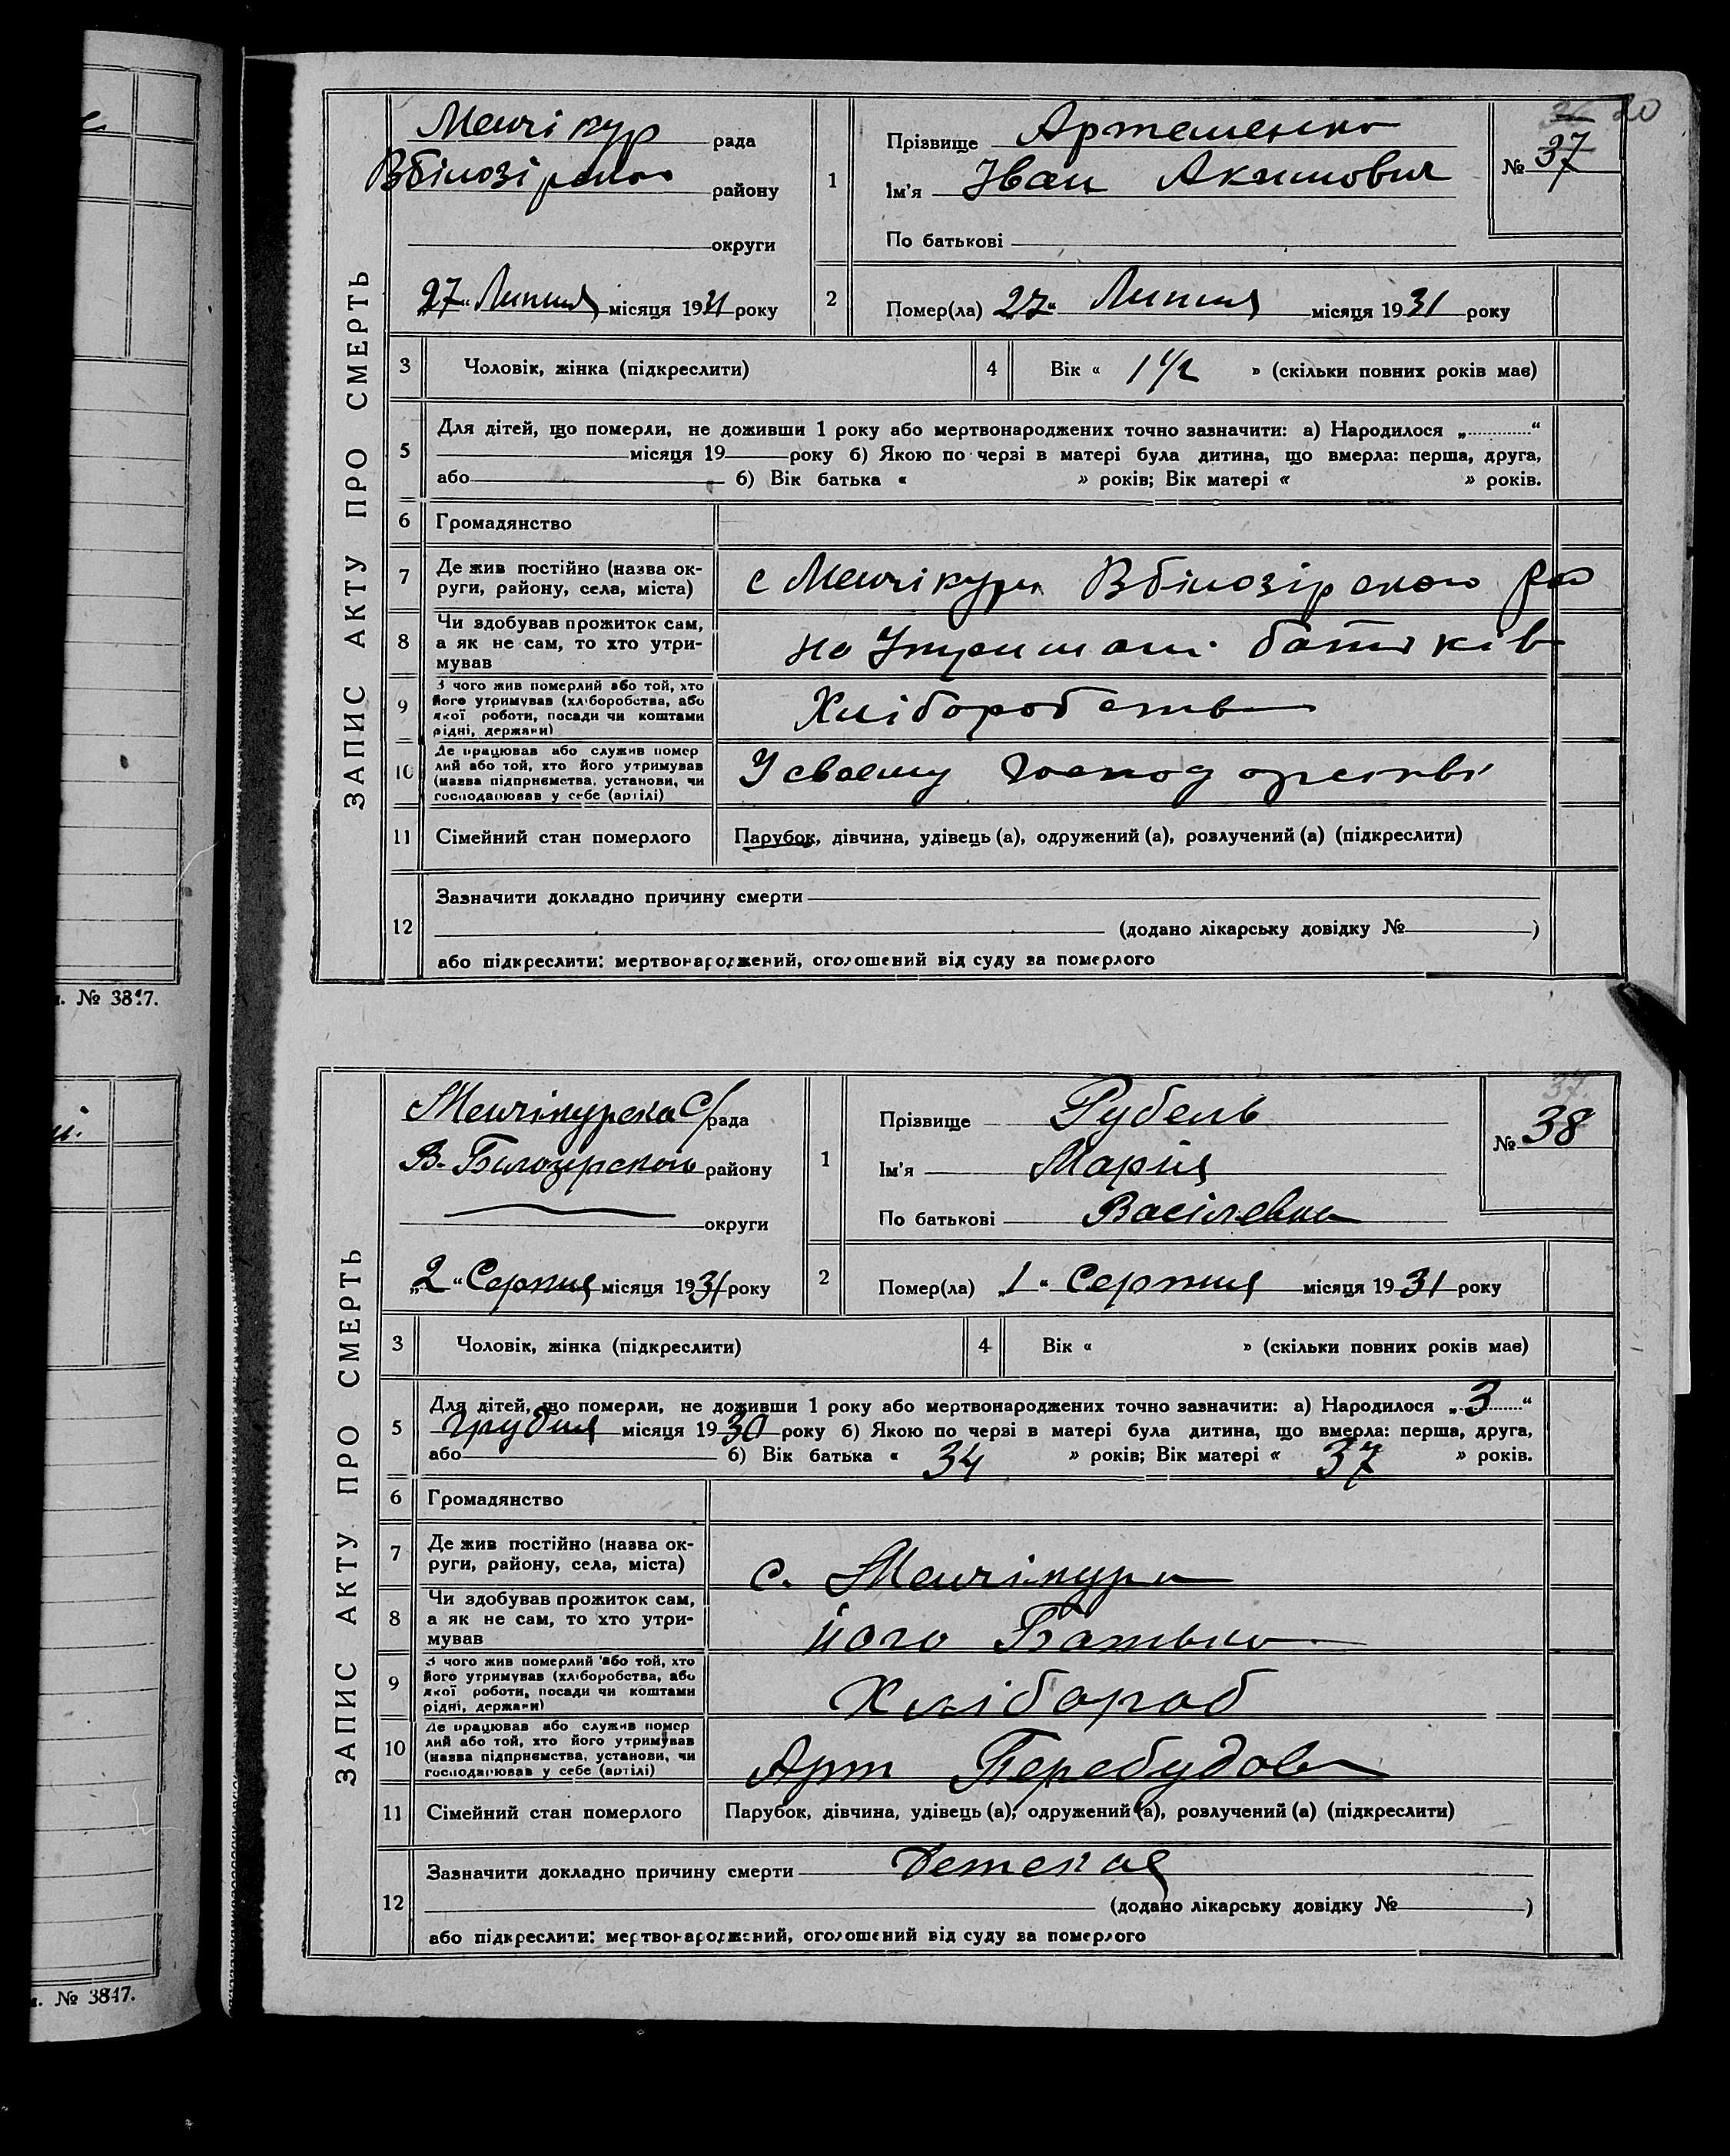 36 20
ЗАПИС АКТУ ПРО СМЕРТЬ
Менчікур рада
Вбілозірського району
округи
27 Липня місяця 1931 року
1
Прізвище Артеменко
Ім'я Іван Акимович
По батькові
№ 37
2
Помер(ла) 27 Липня місяця 1931 року
3 Чоловік, жінка (підкреслити)
4 Вік « 1 1/2 » (скільки повних років має)
5
Для дітей, що померли, не доживши 1 року або мертвонароджених точно зазначити: а) Народилося „............“
місяця 19 року б) Якою по черзі в матері була дитина, що вмерла: перша, друга,
або б) Вік батька « » років; Вік матері « » років.
6 Громадянство
7
Де жив постійно (назва ок-
руги, району, села, міста)
с Менчікури Вбілозірского ра
8
Чи здобував прожиток сам,
а як не сам, то хто утри-
мував
на Утримані батьків
9
З чого жив померлий або той, хто
його утримував (хліборобства, або
якої роботи, посади чи коштами
рідні, держави)
Хліборобств
10
Де працював або служив помер
лий або той, хто його утримував
(назва підприємства, установи, чи
господарював у себе (артілі)
У своему господарстві
11 Сімейний стан померлого
Парубок, дівчина, удівець (а), одружений (а), розлучений (а) (підкреслити)
12
Зазначити докладно причину смерти
(додано лікарську довідку № )
або підкреслити: мертвонароджений, оголошений від суду за померлого
. № 3817.
ЗАПИС АКТУ ПРО СМЕРТЬ
Менчікурска С/рада
В-Білозерского району
округи
„2“ Серпня місяця 1931 року
1
Прізвище Рубель
Ім'я Марія
По батькові Васілевна
37.
№ 38
2
Помер(ла) „1“ Серпня місяця 1931 року
3 Чоловік, жінка (підкреслити)
4 Вік « » (скільки повних років має)
5
Для дітей, що померли, не доживши 1 року або мертвонароджених точно зазначити: а) Народилося „3“
Грудня місяця 1930 року б) Якою по черзі в матері була дитина, що вмерла: перша, друга,
або б) Вік батька « 34 » років; Вік матері « 37 » років.
6 Громадянство
7
Де жив постійно (назва ок-
руги, району, села, міста)
с. Менчікури
8
Чи здобував прожиток сам,
а як не сам, то хто утри-
мував
його Батько
9
З чого жив померлий або той, хто
його утримував (хліборобства, або
якої роботи, посади чи коштами
рідні, держави)
Хлібороб
10
Де працював або служив помер
лий або той, хто його утримував
(назва підприємства, установи, чи
господарював у себе (артілі)
Арт Перебудова
11 Сімейний стан померлого
Парубок, дівчина, удівець (а), одружений (а), розлучений (а) (підкреслити)
12
Зазначити докладно причину смерти Детская
(додано лікарську довідку № )
або підкреслити: мертвонароджений, оголошений від суду за померлого
. № 3817.